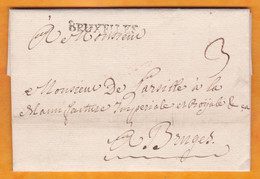 BRUXELLES
A Monsieur
3
Monsieur De Larvitte à la
Manufacture Imperiale et Royale &a
A Bruges.